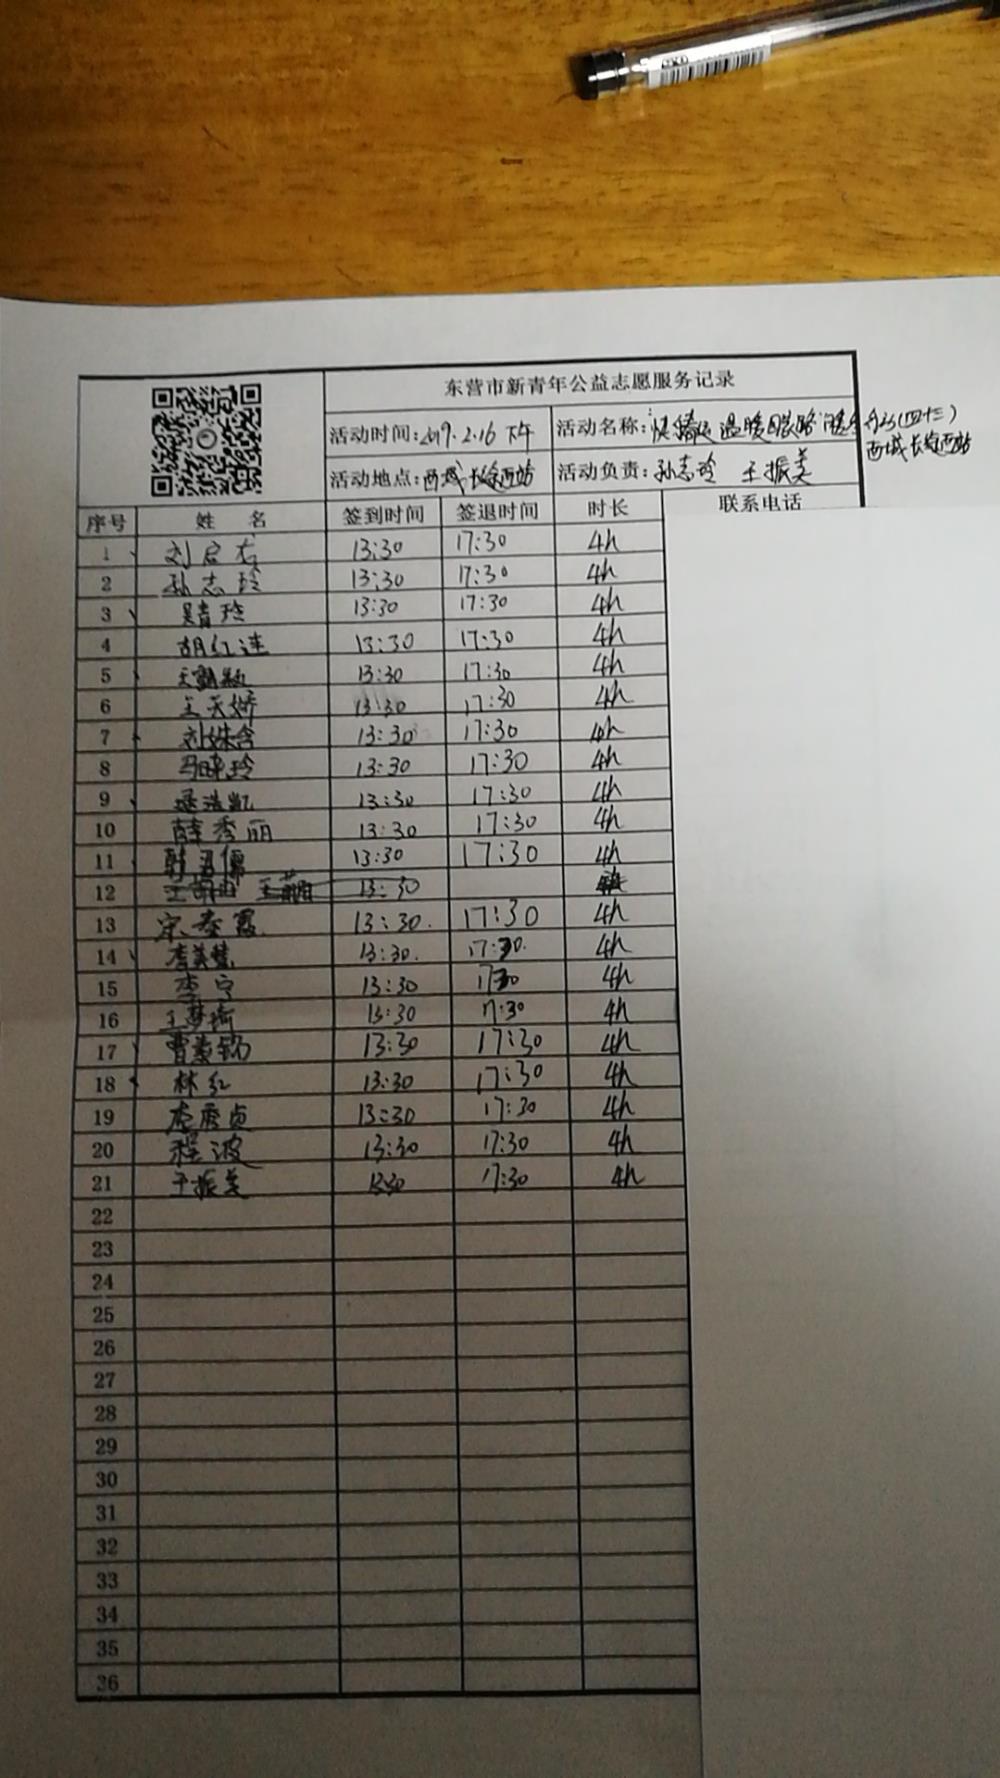 东营市新青年公益志愿服务记录
活动时间:2019.2.16 下午 活动名称: 温暖回家路 (四十三)
西城长途西站
活动地点:西城长途西站 活动负责:孙志玲 王振美
序号 姓 名 签到时间 签退时间 时长 联系电话
1 刘启友 13:30 17:30 4h
2 孙志玲 13:30 17:30 4h
3 吴青玲 13:30 17:30 4h
4 胡红连 13:30 17:30 4h
5 13:30 17:30 4h
6 王天娇 13:30 17:30 4h
7 刘姝含 13:30 17:30 4h
8 玲 13:30 17:30 4h
9 浩凯 13:30 17:30 4h
10 薛秀丽 13:30 17:30 4h
11 13:30 17:30 4h
12 13:30
13 宋春霞 13:30. 17:30 4h
14 李美慧 13:30. 17:30. 4h
15 李宁 13:30 1730 4h
16 王梦琦 13:30 17:30 4h
17 曹 13:30 17:30 4h
18 林红 13:30 17:30 4h
19 13:30 17:30 4h
20 程波 13:30 17:30 4h
21 王振美 1330 17:30 4h
22
23
24
25
26
27
28
29
30
31
32
33
34
35
36